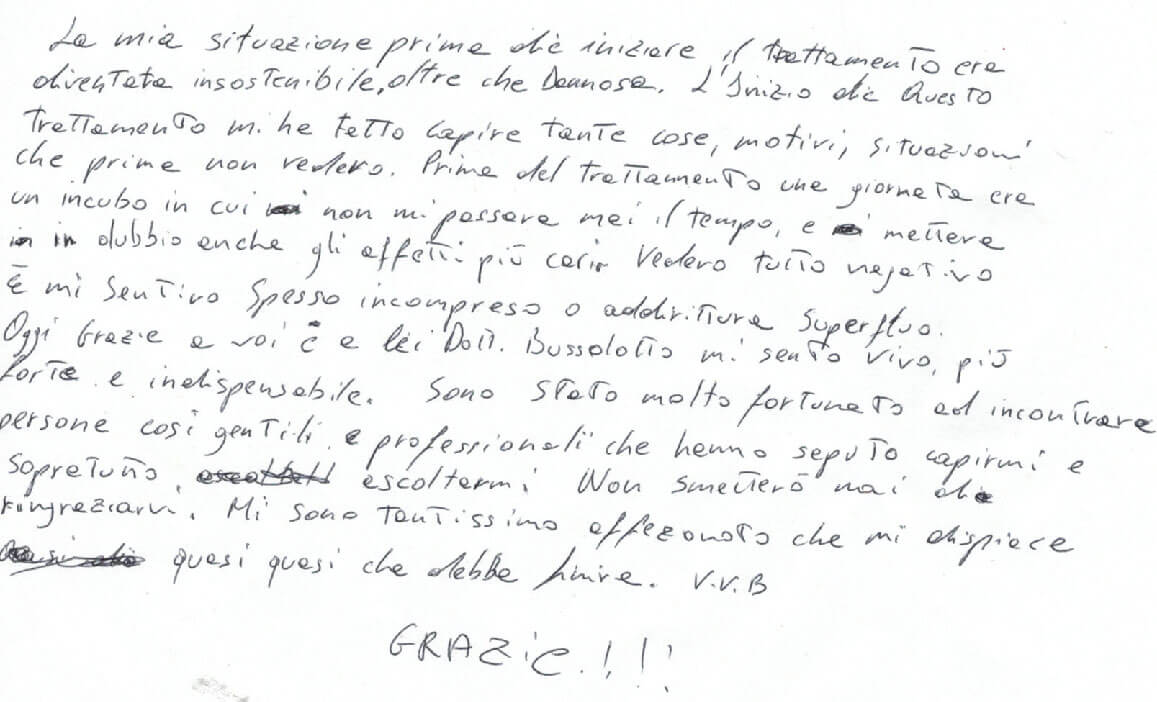 La mia situazione prima di iniziare il trattamento era
diventata insostenibile, oltre che Dannosa. L'Inizio di Questo
Trattamento mi ha fatto capire tante cose, motivi, situazioni
che prima non vedevo. Prima del trattamento una giornata era
un incubo in cui non mi passava mai il tempo, e mettere
in dubbio anche gli affetti più cari. Vedevo tutto negativo
E mi Sentivo Spesso incompreso o addirittura Superfluo.
Oggi Grazie a voi e a lei Dott. Bussolotto mi sento vivo, più
forte e indispensabile. Sono stato molto fortunato ad incontrare
persone così gentili e professionali che hanno saputo capirmi e
Sopratutto, ascoltarmi. Non smetterò mai di
ringraziarvi. Mi sono Tantissimo affezonato che mi dispiace
quasi quasi che debba finire. V.V.B
GRAZIE.!!!